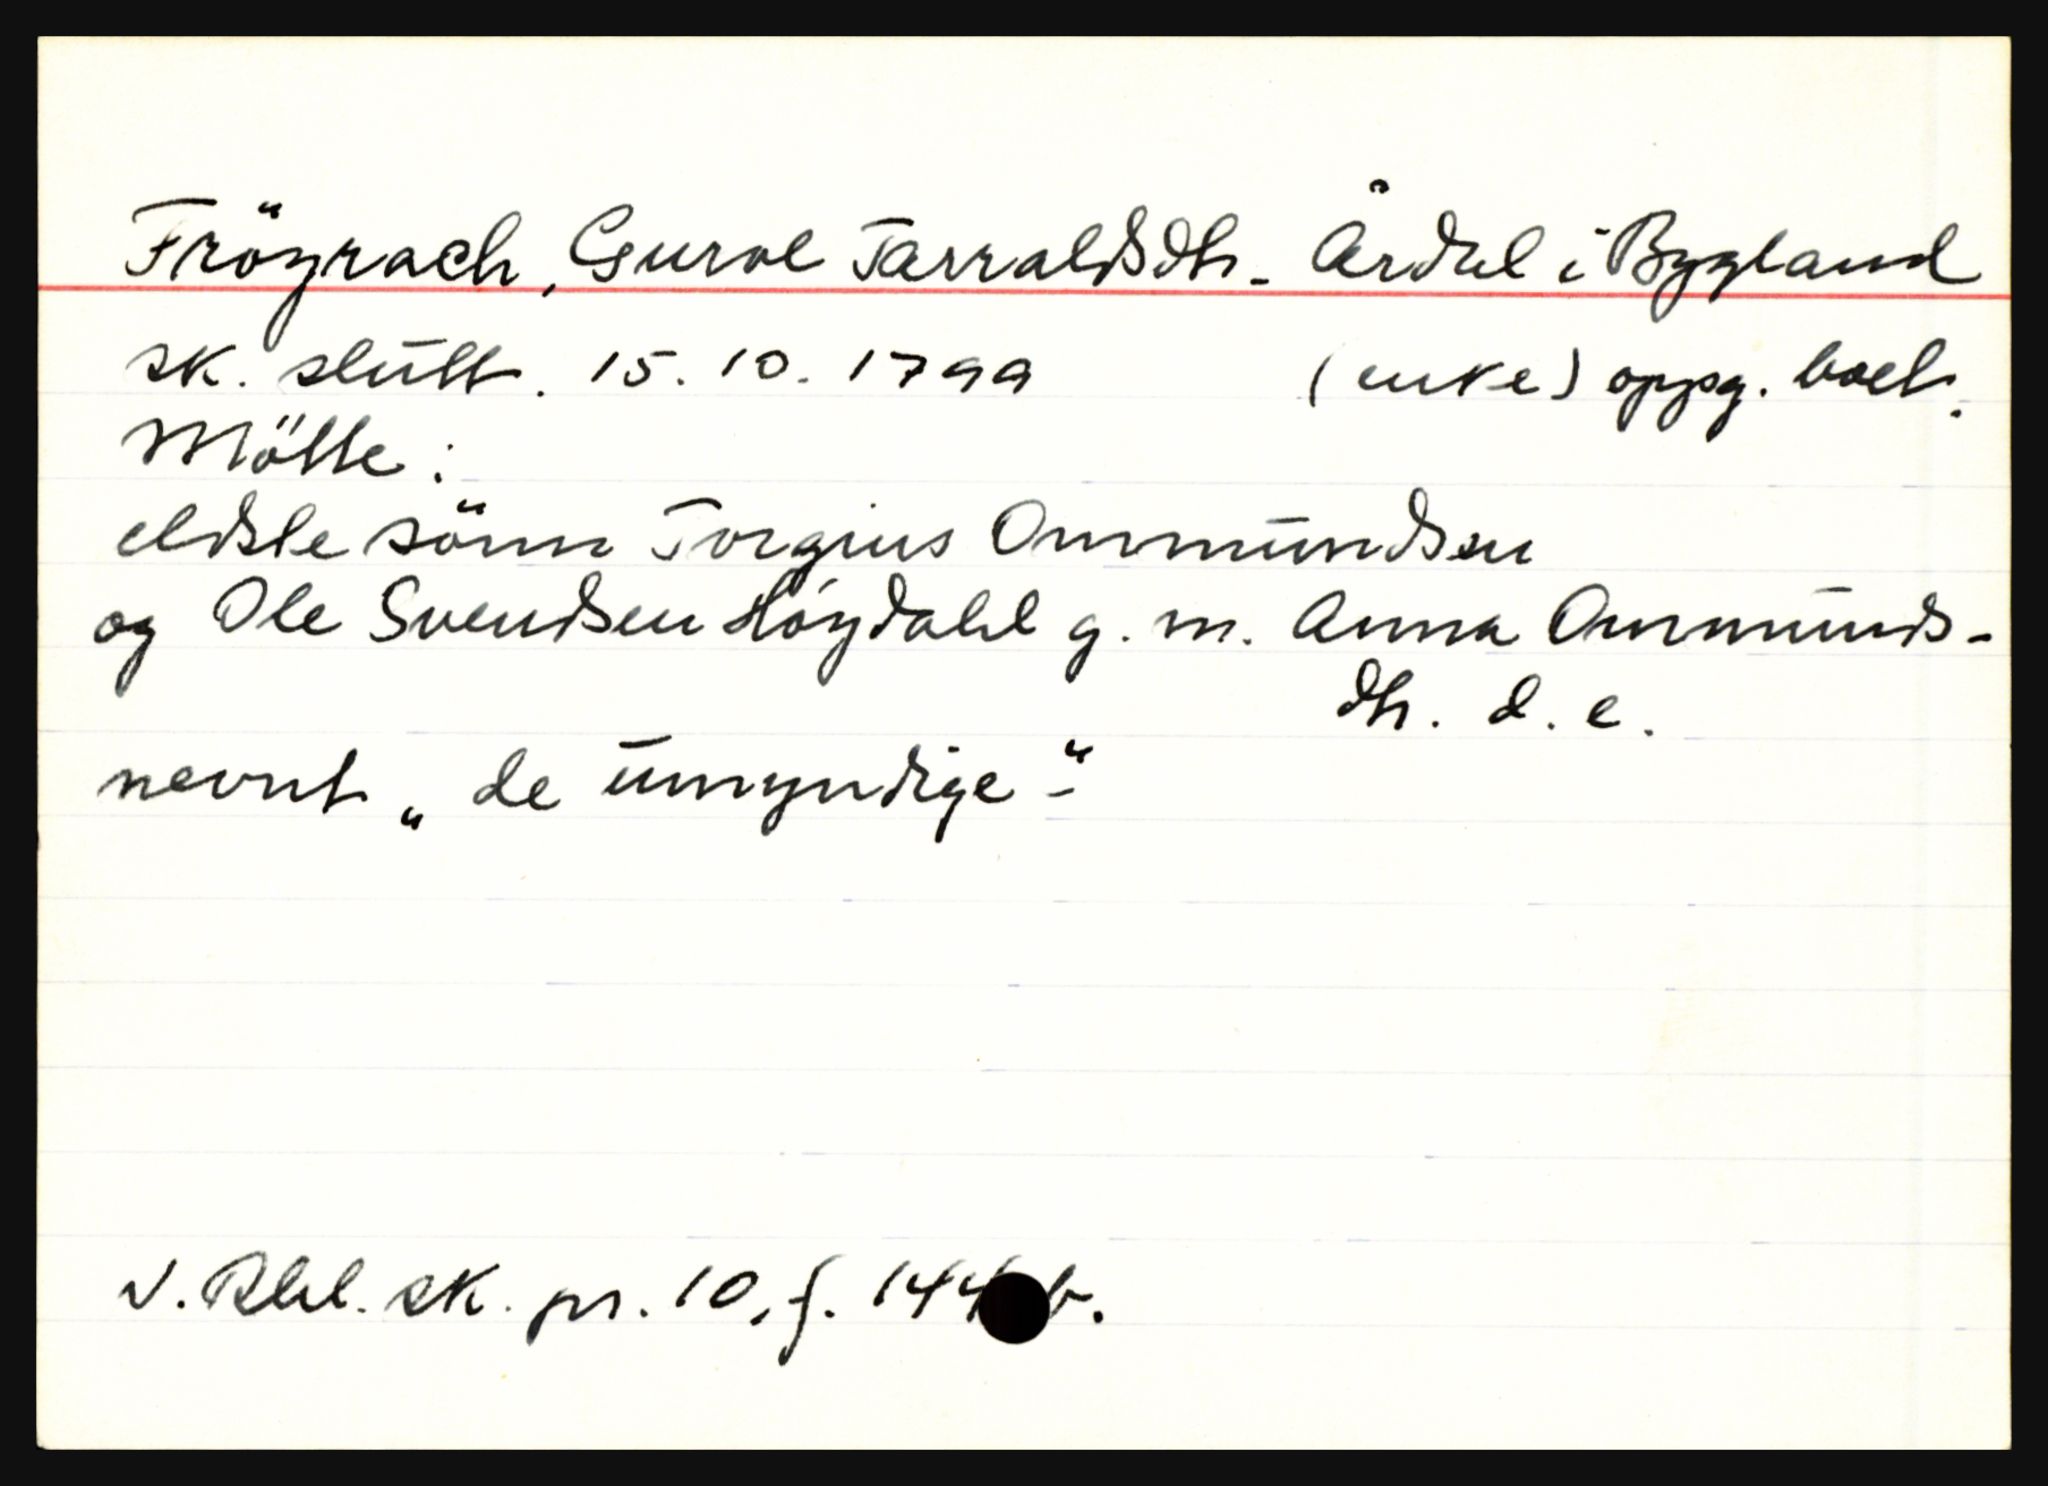 Fröyrach, Guroe Tarraldsdtr. Årdal i Bygland
sk. slutt. 15. 10. 1799 (enke) oppg. boet.
Mötte:
eldste sönn Torgius Ommundsen
og Ole Svendsen Høydahl g. m. Anna Ommunds-
dtr. d. e.
nevnt „de umyndige-“
V. Rbl. sk. pr. 10, f. 144 b.